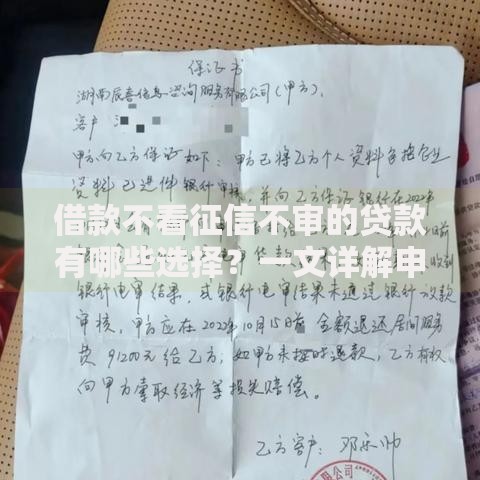 保证书
湖南辰喜信息咨询服务有限公司(甲方),
客户
甲方向乙方保证如下:甲方已将乙方个人资料包括企业
资料已进件银行审核,并向乙方保证银行在2022年
借款不看征信不审的贷款
有哪些选择?一文详解申
银行电审结果,或银行电审结果未通过银行放款
审核,甲方应在2022年10月15日前全额退还居间服务
费91200元给乙方;如甲方未按时退款,乙方有权
向甲方索取经济等损失赔偿。
乙方客户:邓乐帅
限公司